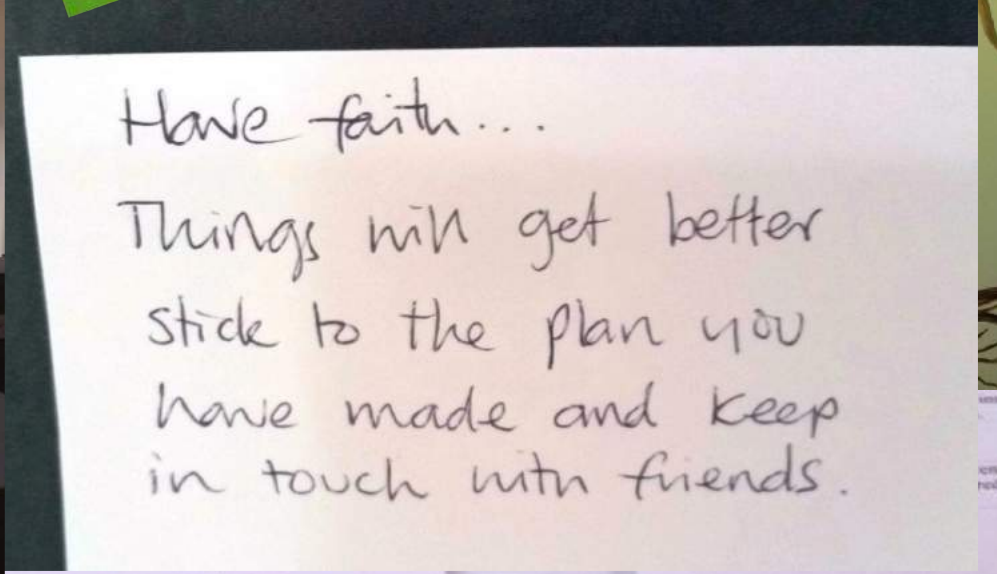 Have faith...
Things will get better
stick to the plan you
have made and keep
in touch with friends.